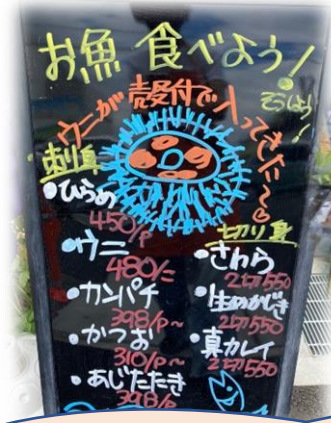 お魚 食べよう!
そうしよう!
ウニが殻付で入ってきた〜。
刺身
•ひらめ
450/p
•ウニ
480/=
•カンパチ
398/p~
•かつお
310/p~
•あじたたき
398/p
切り身
•さわら
2切550
•生めかじき
2切550
•真カレイ
2切550